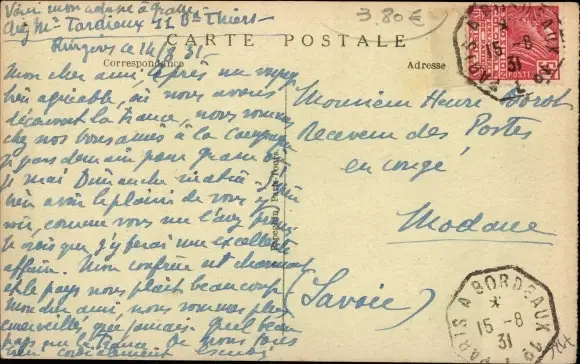 Voici mon adresse à
chez Mr Tardieux 11 Bd Thiers
3.80€
le 14/8 31
CARTE POSTALE
Correspondance
Adresse
Mon cher ami, Après un voyage
très agréable, où nous avons
découvert la France, nous sommes
chez nos bons amis à la campagne
Je pars demain pour
J'
bien avoir le plaisir de vous y
voir, comme vous me l'avez
Je crois que j'y ferai une excellente
affaire. Mon confrère est charmant
et le pays nous plaît beaucoup
Mon cher ami, nous sommes plus
émerveillés que jamais. Quel beau
pays que la France. De nous tous
bien cordialement
Monsieur Henri
Receveur des Postes
en congé
Modane
(Savoie)
POSTES
PARIS A BORDEAUX
15 -8
31
PARIS A BORDEAUX
*
15 -8
31